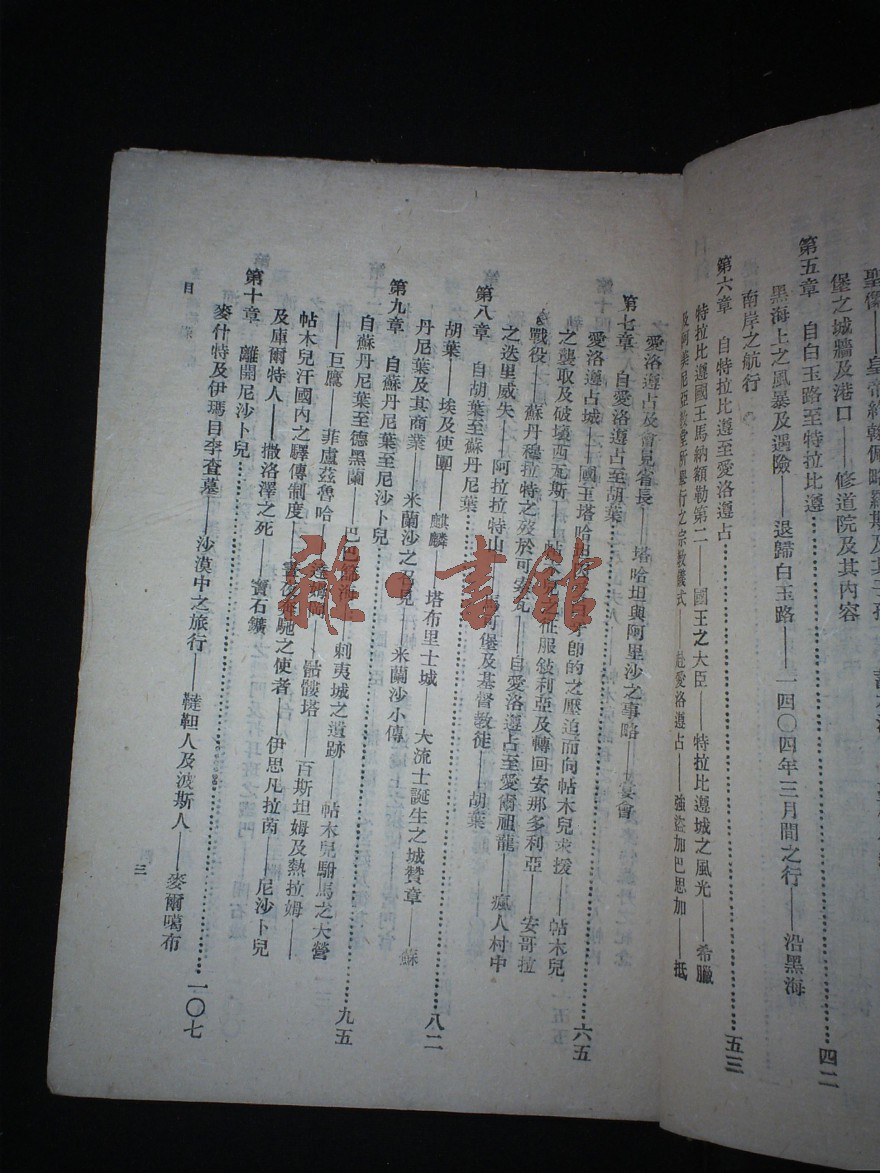 堡之城牆及港口——修道院及其內容
第五章　自白玉路至特拉比遵……四二
黑海上之風暴及遇險——退歸白玉路——一四〇四年三月間之行——沿黑海
南岸之航行
第六章　自特拉比遵至愛洛遵占……五三
特拉比遵國王馬納額勒第二——國王之大臣——特拉比遵城之風光——希臘
及阿美尼亞教堂所舉行之宗教儀式——赴愛洛遵占——強盜加巴思加——抵
愛洛遵占及會見省長——塔哈坦與阿里沙之事略——宴會
第七章　自愛洛遵占至胡葉……六五
愛洛遵占城——國王塔哈坦
之壓迫而向帖木兒求援——帖木兒
之襲取及破壞西瓦斯——帖木兒之征服敍利亞及轉回安那多利亞——安哥拉
戰役——蘇丹穆拉特之歿於可
之迭里威失——阿拉拉特山
自愛洛遵占至愛爾祖龍——瘋人村中
堡及基督教徒——胡葉
第八章　自胡葉至蘇丹尼葉……八二
胡葉——埃及使團——麒麟——塔布里士城——大流士誕生之城贊章——蘇
丹尼葉及其商業——米蘭沙之召見——米蘭沙小傳
第九章　自蘇丹尼葉至尼沙卜兒……九五
自蘇丹尼葉至德黑蘭——巴
剌夷城之遺跡——帖木兒駙馬之大營
——巨鷹——菲盧茲魯哈——達姆岡——骷髏塔——百斯坦姆及熱拉姆——
帖木兒汗國內之驛傳制度——晝夜奔馳之使者——伊思凡拉茵——尼沙卜兒
及庫爾特人——撒洛澤之死——寶石鑛
第十章　離開尼沙卜兒……一〇七
麥什特及伊瑪目李查墓——沙漠中之旅行——韃靼人及波斯人——麥爾噶布
目
三
雜·書館